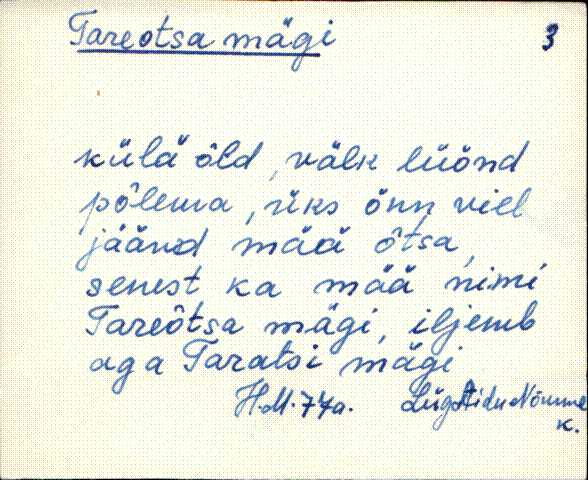 Tareotsa mägi
3
külä õld, välk lüönd
põlema, üks õnn viel
jäänd mää õtsa,
senest ka mää nimi
Tareõtsa mägi, iljemb
aga Taratsi mägi
H.M. 74a. Lüg Aidu Nõmme
k.